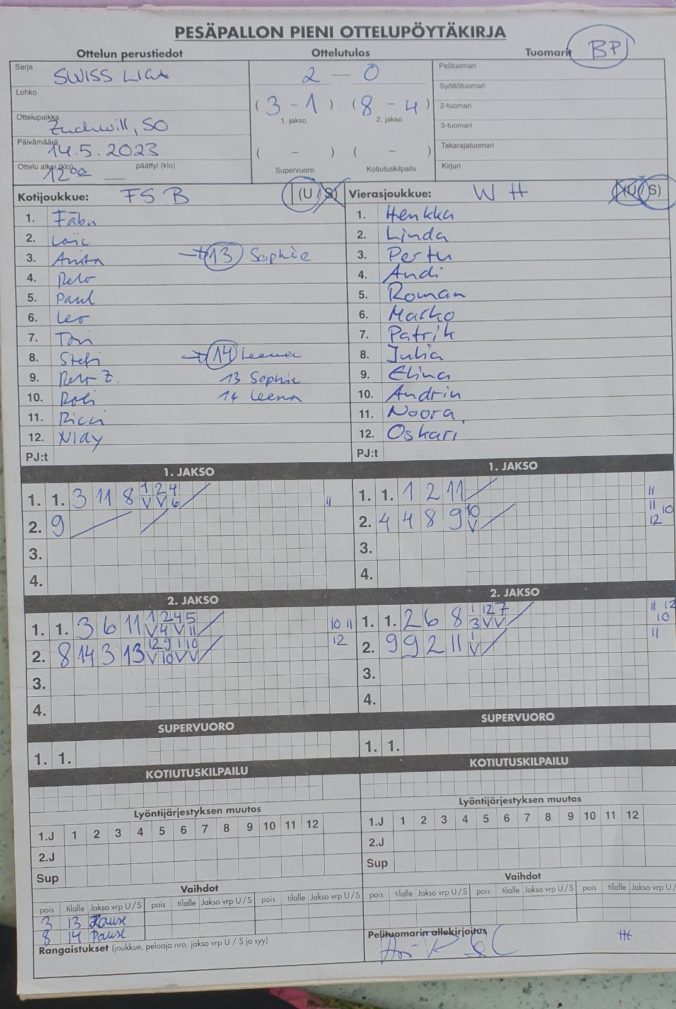 PESÄPALLON PIENI OTTELUPÖYTÄKIRJA
Ottelun perustiedot Ottelutulos Tuomarit BP
Sarja SWISS LIGA
Lohko
Ottelupaikka Zuchwill, SO
Päivämäärä 14.5. 2023
Ottelu alkoi (klo) 12 00 päättyi (klo)
2 – 0
(3 – 1) (8 – 4)
1. jakso 2. jakso
( – ) ( – )
Supervuoro Kotiutuskilpailu
Pelituomari
Syöttötuomari
2-tuomari
3-tuomari
Takarajatuomari
Kirjuri
Kotijoukkue: FSB (U/S)
1. Fäbu
2. Loïc
3. Anita → 13 Sophie
4. Reto
5. Paul
6. Leo
7. Toni
8. Stefi → 14 Leena
9. Reto Z. 13 Sophie
10. Roli 14 Leena
11. Ricci
12. Nidy
PJ:t
Vierasjoukkue: WH (U/S)
1. Henkka
2. Linda
3. Perttu
4. Andi
5. Roman
6. Marko
7. Patrik
8. Julia
9. Elina
10. Andrin
11. Noora
12. Oskari
PJ:t
1. JAKSO
1. 1. 3 11 8 1 2 4 V V 6 11
2. 9
3.
4.
1. JAKSO
1. 1. 1 2 11 11
2. 4 4 8 9 10 V 11 10 12
3.
4.
2. JAKSO
1. 1. 3 6 11 1 2 4 5 V 4 V 11 10 11
2. 8 14 3 13 12 9 1 10 V 10 V V 12
3.
4.
2. JAKSO
1. 1. 2 6 8 1 12 7 3 V V 11 12 10
2. 9 9 2 11 1 V 11
3.
4.
SUPERVUORO SUPERVUORO
1. 1. 1. 1.
KOTIUTUSKILPAILU KOTIUTUSKILPAILU
Lyöntijärjestyksen muutos Lyöntijärjestyksen muutos
1.J 1 2 3 4 5 6 7 8 9 10 11 12 1.J 1 2 3 4 5 6 7 8 9 10 11 12
2.J 2.J
Sup Sup
Vaihdot Vaihdot
pois tilalle Jakso vrp U/S pois tilalle Jakso vrp U/S pois tilalle Jakso vrp U/S
pois tilalle Jakso vrp U/S pois tilalle Jakso vrp U/S pois tilalle Jakso vrp U/
3 13 Pause
8 14 Pause
Rangaistukset (joukkue, pelaaja nro, jakso vrp U / S ja syy)
Pelituomarin allekirjoitus